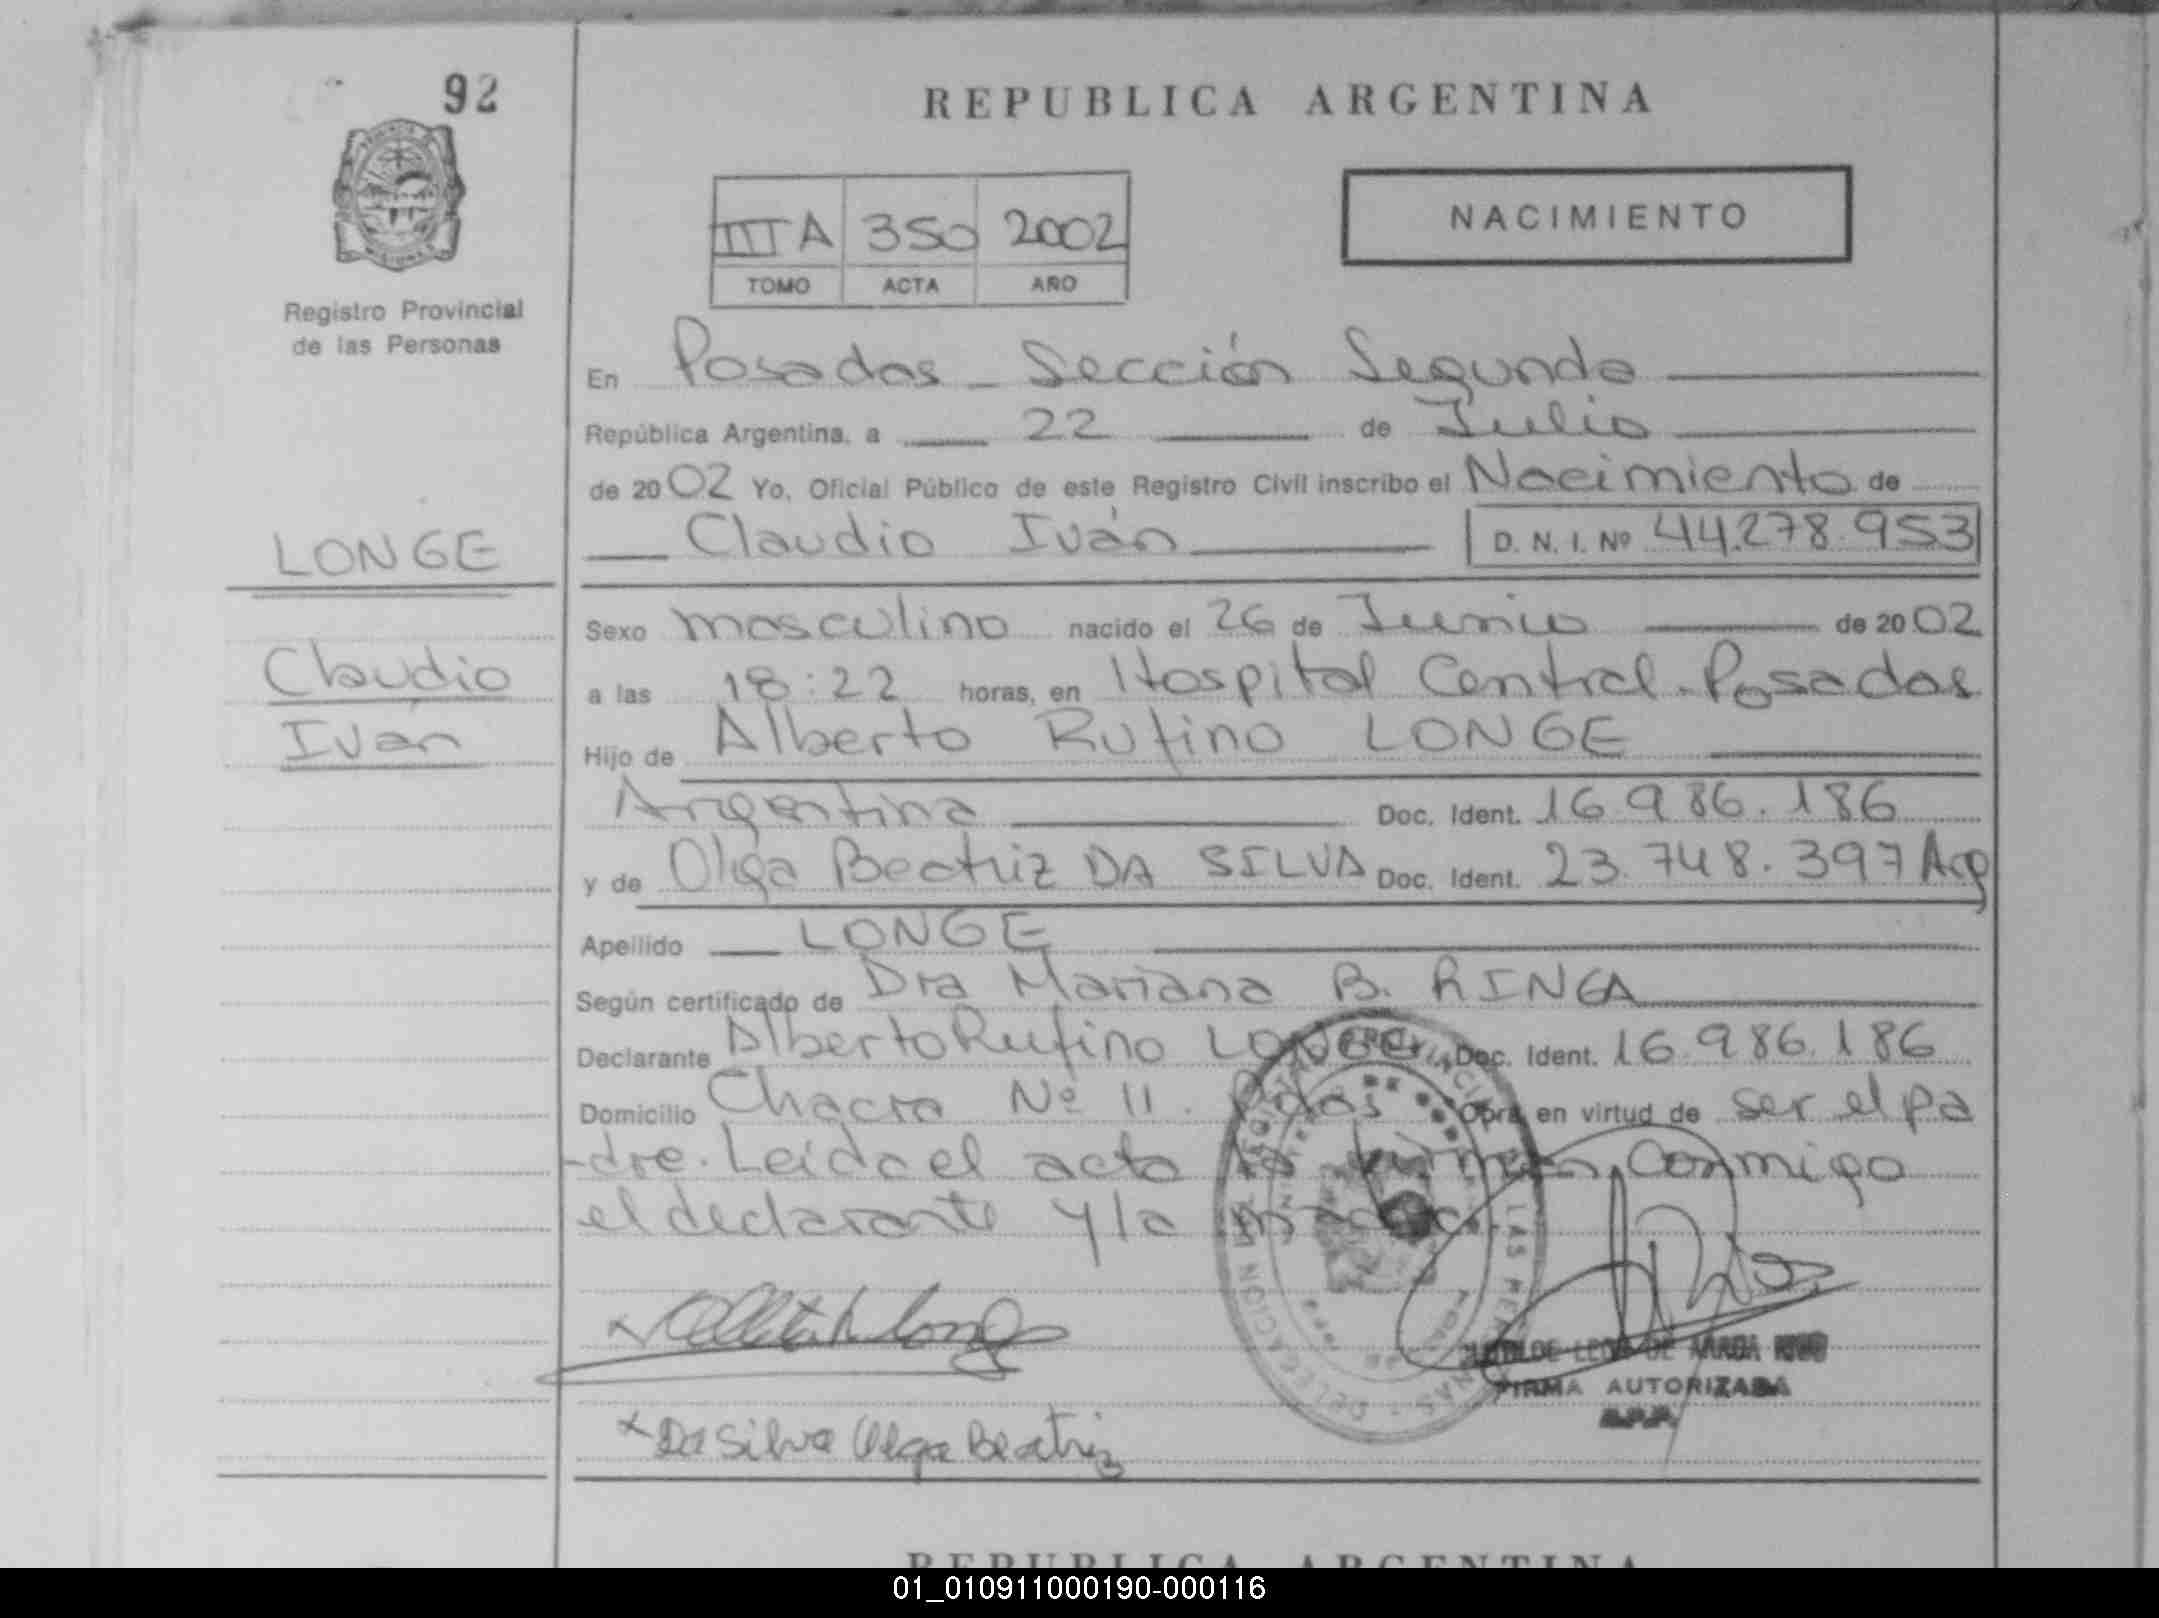 92
REPUBLICA ARGENTINA
NACIMIENTO
IIIA 350 2002
TOMO ACTA AÑO
Registro Provincial
de las Personas
En Posadas - Sección Segunda
República Argentina, a 22 de Julio
de 2002 Yo, Oficial Público de este Registro Civil inscribo el Nacimiento de
Claudio Iván D. N. I. Nº 44.278.953
LONGE
Claudio
Iván
Sexo masculino nacido el 26 de Junio de 2002
a las 18:22 horas, en Hospital Central - Posadas
Hijo de Alberto Rufino LONGE
Argentina Doc. Ident. 16.986.186
y de Olga Beatriz DA SILVA Doc. Ident. 23.748.397 Arg
Apellido LONGE
Según certificado de Dra Mariana B. RINGA
Declarante Alberto Rufino LONGE Doc. Ident. 16.986.186
Domicilio Chacra Nº 11. Pdas Obra en virtud de ser el pa
-dre. Leída el acta la firman conmigo
el declarante y la madre.
x Da Silva Olga Beatriz
FIRMA AUTORIZADA
R.P.P.
REPUBLICA ARGENTINA
01_010911000190-000116